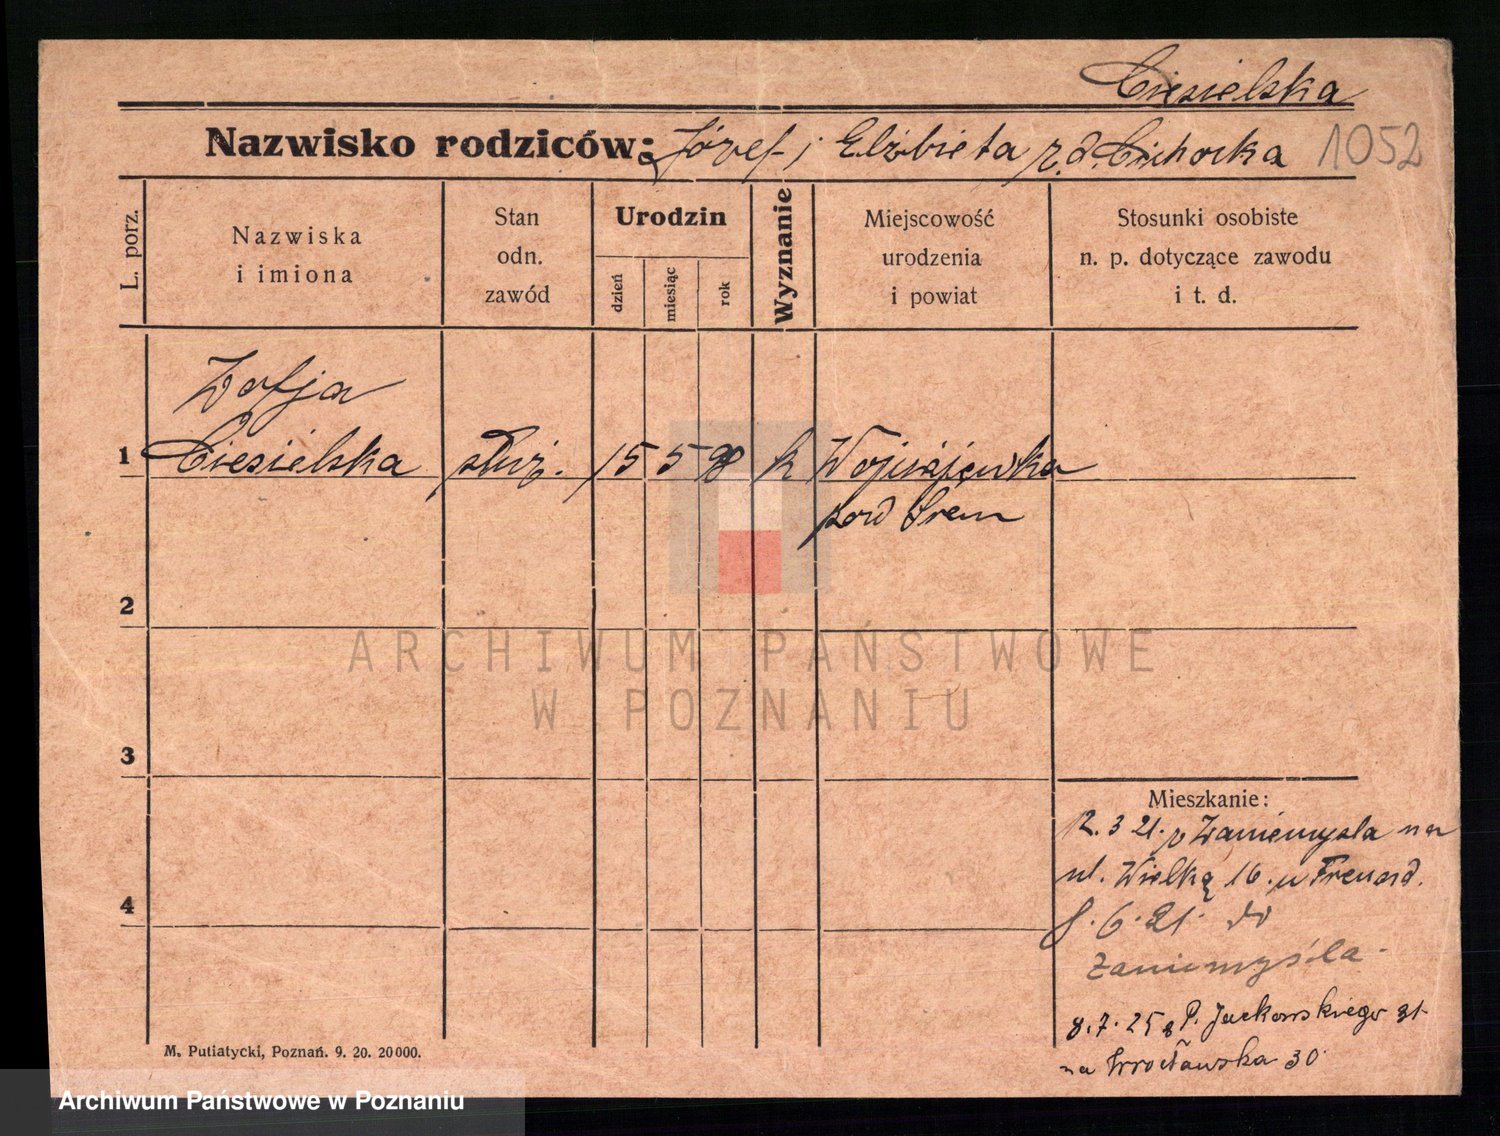 Ciesielska
Nazwisko rodziców: Józef i Elżbieta r.d. Cichocka 1052
L. porz.
Nazwiska
i imiona
Stan
odn.
zawód
Urodzin
dzień
miesiąc
rok
Wyznanie
Miejscowość
urodzenia
i powiat
Stosunki osobiste
n. p. dotyczące zawodu
i t. d.
Zofja
1 Ciesielska służ. 15 5 98 k
pow Śrem
2
ARCHIWUM PAŃSTWOWE
W POZNANIU
3
Mieszkanie:
12.3 21. z Zaniemyśla na
ul. Wielką 16. u
4
8.6.21. do
Zaniemyśla -
8.7.25 z P. Jackowskiego 31
na Wrocławska 30
M. Putiatycki, Poznań. 9. 20. 20000.
Archiwum Państwowe w Poznaniu